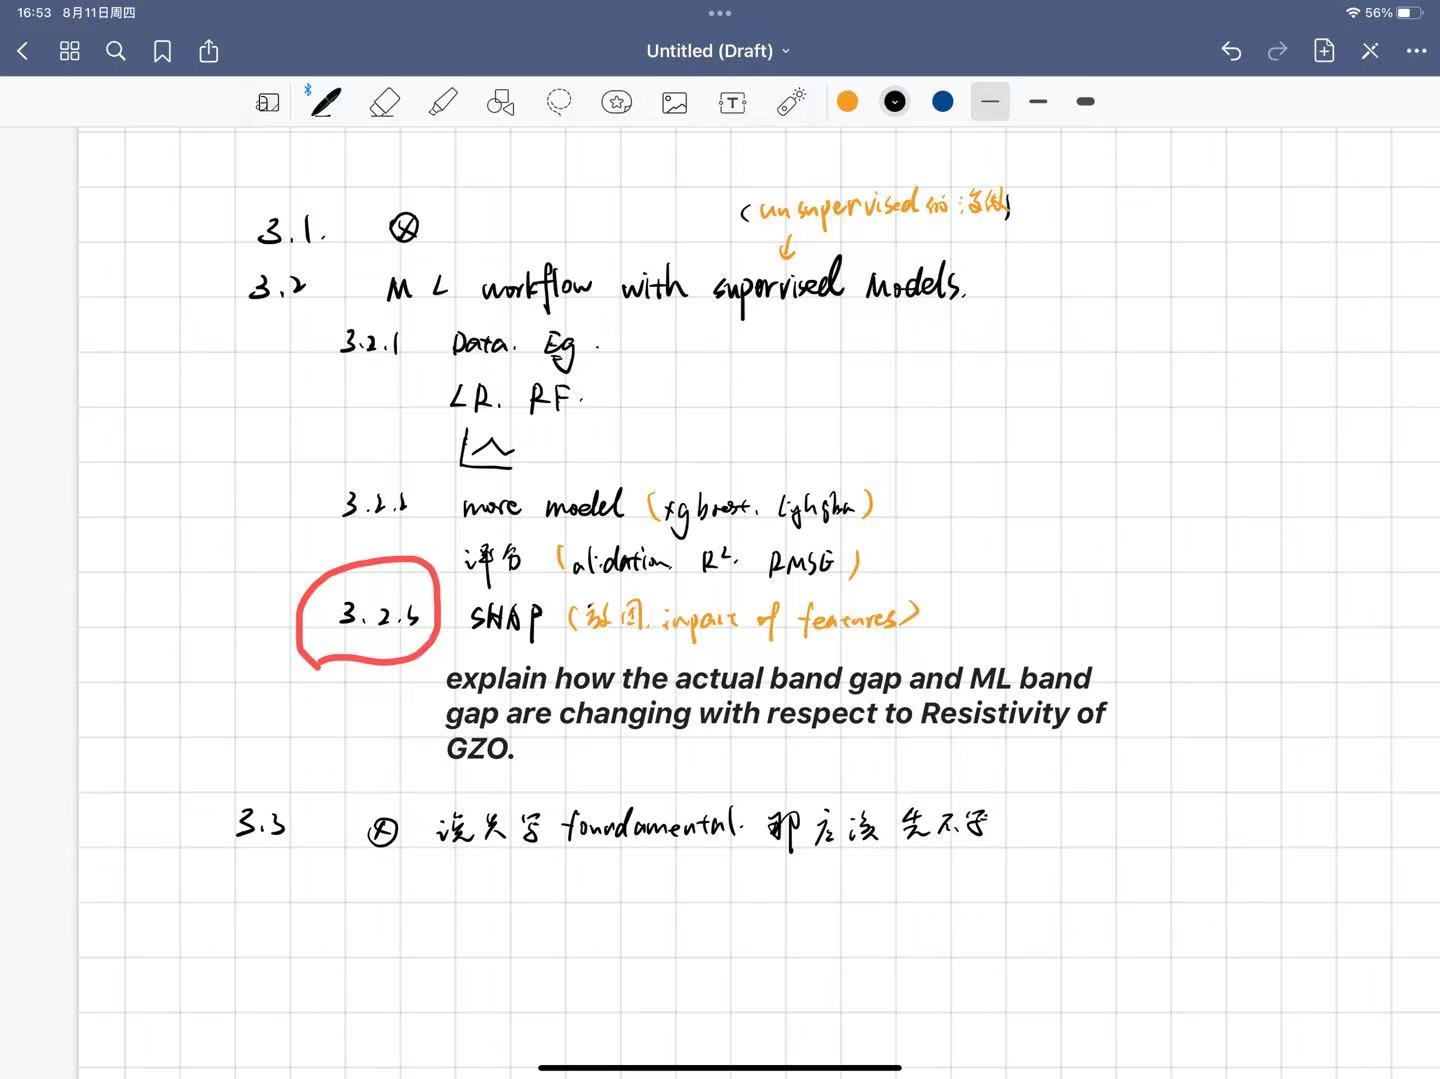 16:53 8月11日周四
56%
Untitled (Draft)
(unsupervised 的 没做)
3.1.
3.2 ML workflow with supervised Models.
3.2.1 Data. Eg.
LR. RF.
3.2.2 more model (xgboost.
评分 (alidation R². RMSE)
SHAP (放图. inpact of features)
explain how the actual band gap and ML band
gap are changing with respect to Resistivity of
GZO.
3.3 说先写 foundamental. 那应该先不写